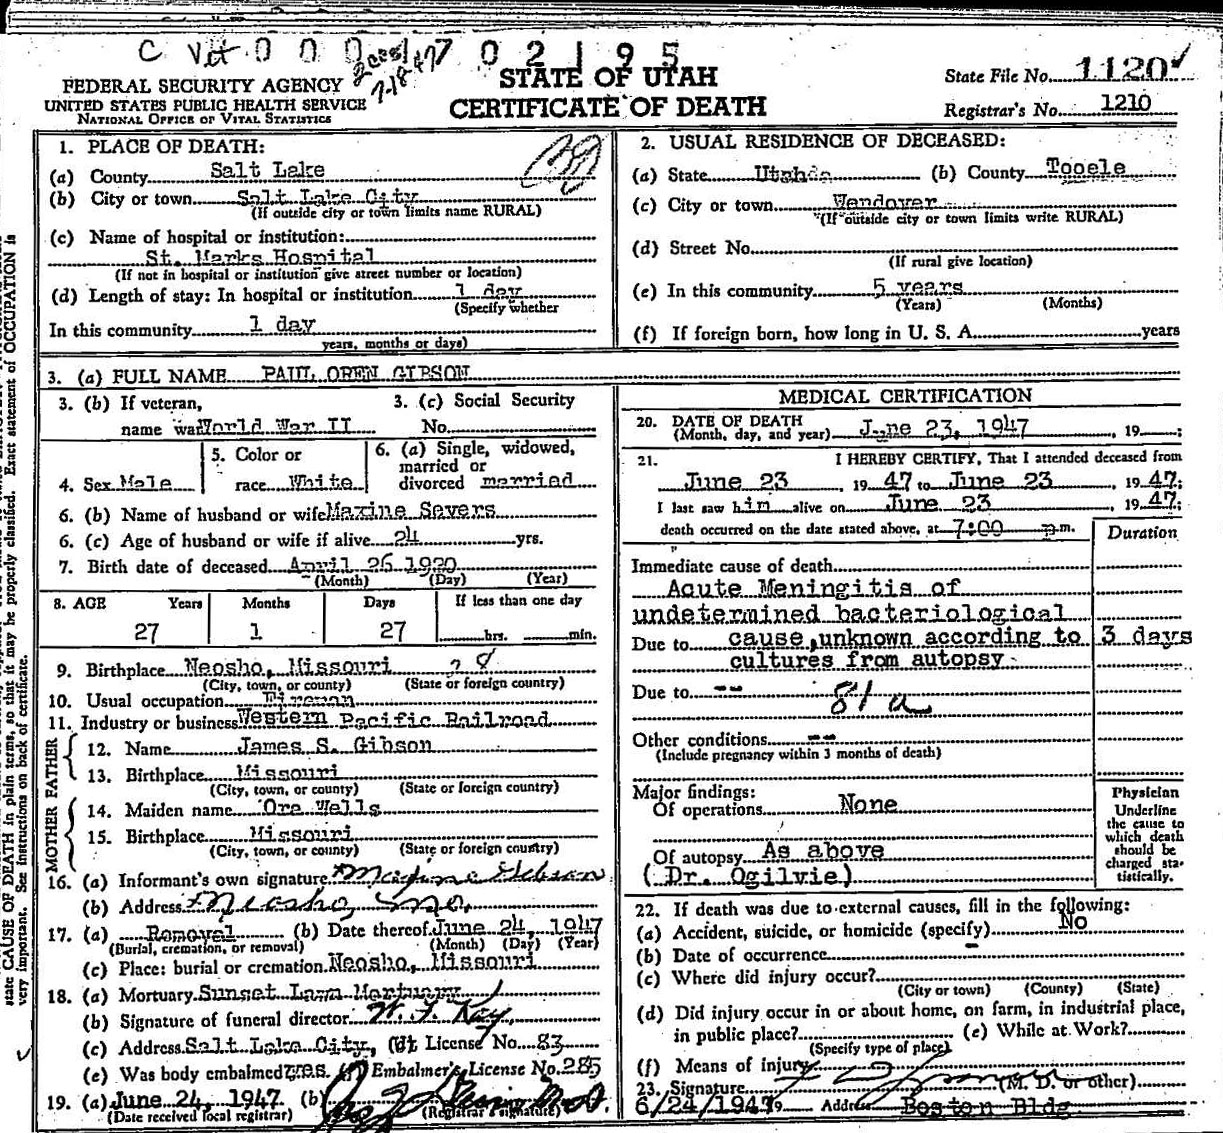 C Vet 0 0 0 7 0 2 1 9 5
7-18-47
FEDERAL SECURITY AGENCY
UNITED STATES PUBLIC HEALTH SERVICE
NATIONAL OFFICE OF VITAL STATISTICS
STATE OF UTAH
CERTIFICATE OF DEATH
State File No. 1120
Registrar's No. 1210
1. PLACE OF DEATH:
(a) County Salt Lake
(b) City or town Salt Lake City
(If outside city or town limits name RURAL)
(c) Name of hospital or institution:
St. Marks Hospital
(If not in hospital or institution give street number or location)
(d) Length of stay: In hospital or institution 1 day
(Specify whether
In this community 1 day
years, months or days)
2. USUAL RESIDENCE OF DECEASED:
(a) State Utah (b) County Tooele
(c) City or town Wendover
(If outside city or town limits write RURAL)
(d) Street No.
(If rural give location)
(e) In this community 5 years
(Years) (Months)
(f) If foreign born, how long in U. S. A. years
3. (a) FULL NAME PAUL OREN GIBSON
3. (b) If veteran, 3. (c) Social Security
name war World War II No.
4. Sex Male
5. Color or
race White
6. (a) Single, widowed,
married or
divorced married
6. (b) Name of husband or wife Maxine Severs
6. (c) Age of husband or wife if alive 24 yrs.
7. Birth date of deceased April 26 1920
(Month) (Day) (Year)
8. AGE Years Months Days If less than one day
27 1 27 hrs. min.
9. Birthplace Neosho, Missouri
(City, town, or county) (State or foreign country)
10. Usual occupation Fireman
11. Industry or business Western Pacific Railroad
FATHER
12. Name James S. Gibson
13. Birthplace Missouri
(City, town, or county) (State or foreign country)
MOTHER
14. Maiden name Ore Wells
15. Birthplace Missouri
(City, town, or county) (State or foreign country)
16. (a) Informant's own signature Maxine Gibson
(b) Address Neosho, Mo.
17. (a) Removal (b) Date thereof June 24, 1947
(Burial, cremation, or removal) (Month) (Day) (Year)
(c) Place: burial or cremation Neosho, Missouri
18. (a) Mortuary Sunset Lawn Mortuary
(b) Signature of funeral director
(c) Address Salt Lake City, (Ut License No. 83
(e) Was body embalmed yes. Embalmer's License No. 285
19. (a) June 24, 1947 (b)
(Date received local registrar) (Registrar's signature)
MEDICAL CERTIFICATION
20. DATE OF DEATH
(Month, day, and year) June 23, 1947, 19 ;
21. I HEREBY CERTIFY, That I attended deceased from
June 23, 19 47 to June 23, 19 47;
I last saw him alive on June 23, 19 47;
death occurred on the date stated above, at 7:00 p.m.
Duration
Immediate cause of death
Acute Meningitis of
undetermined bacteriological
Due to cause, unknown according to 3 days
cultures from autopsy
Due to --
81 a
Other conditions --
(Include pregnancy within 3 months of death)
Major findings:
Of operations None
Of autopsy As above
(Dr. Ogilvie)
Physician
Underline
the cause to
which death
should be
charged sta-
tistically.
22. If death was due to external causes, fill in the following:
(a) Accident, suicide, or homicide (specify) No
(b) Date of occurrence -
(c) Where did injury occur?
(City or town) (County) (State)
(d) Did injury occur in or about home, on farm, in industrial place,
in public place? (e) While at Work?
(Specify type of place)
(f) Means of injury
23. Signature (M. D. or other)
6/24/1947 19 Address Boston Bldg
state CAUSE OF DEATH in plain terms, so that it may be properly classified. Exact statement of OCCUPATION is
very important. See instructions on back of certificate.